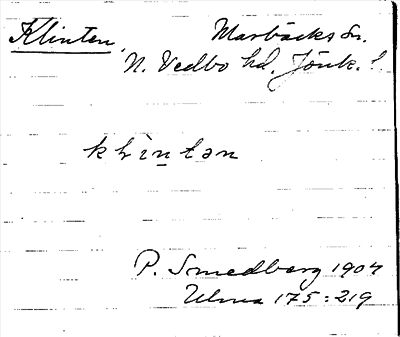 Klinten, Marbäcks sn.
N. Vedbo hd. Jönk. l.
klìntən
P. Smedberg 1904
Ulma 175:219